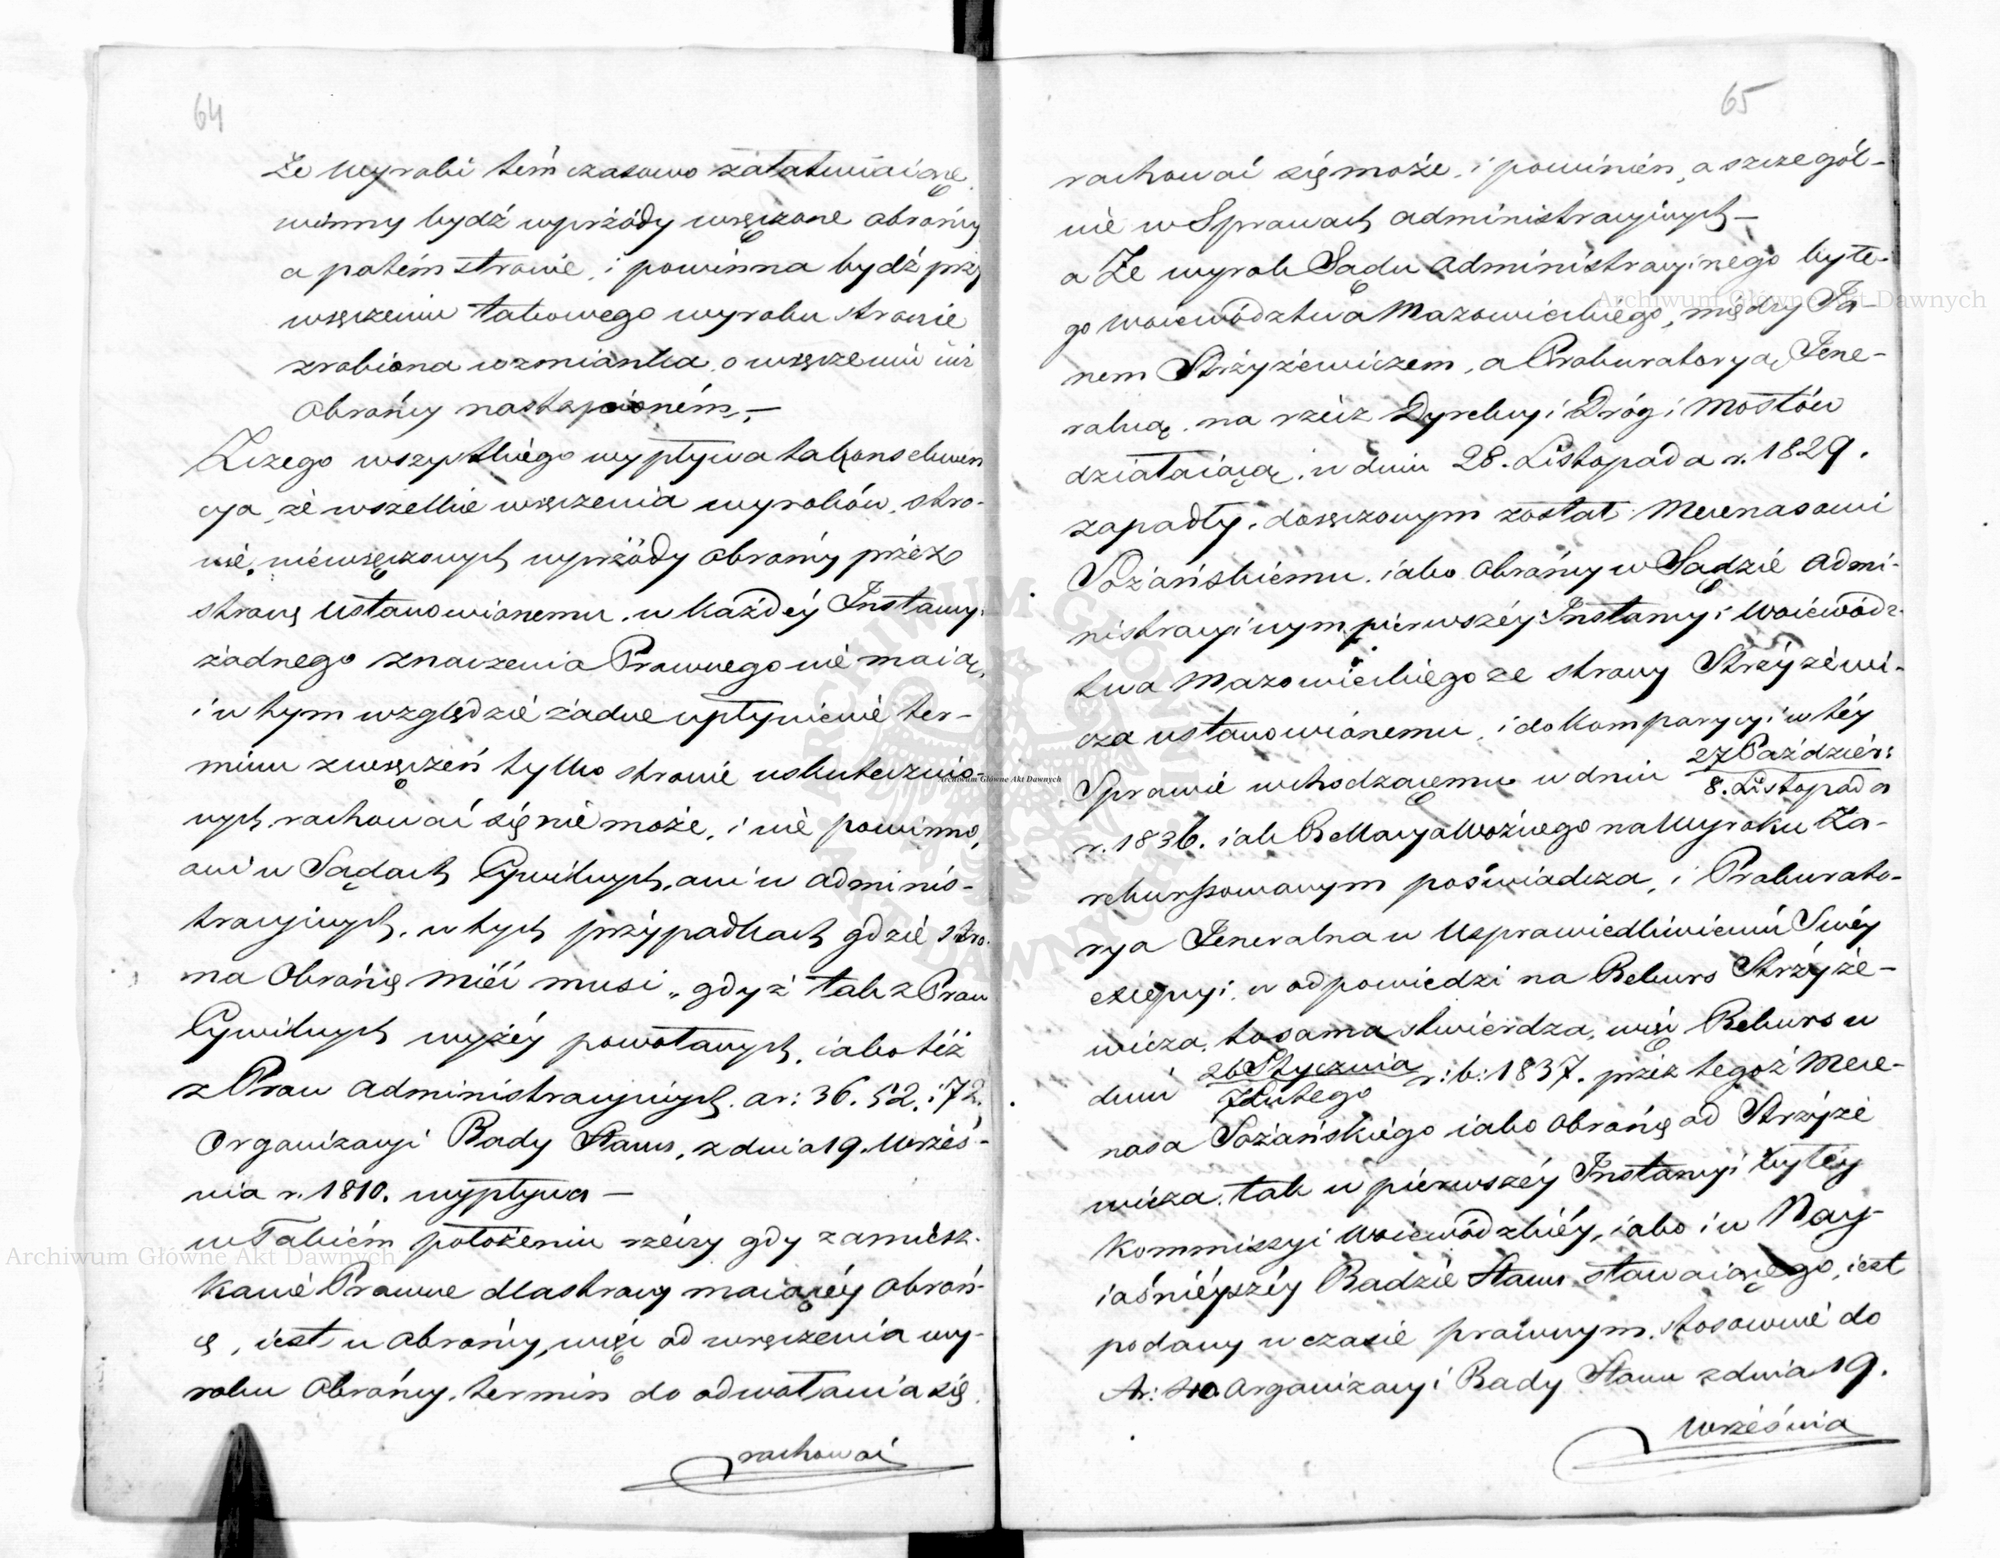 64
Że wyroki témczasowo załatwiaiące
winny bydź wprzódy wręczone obrońcy
a potém stronie, i powinna bydź przy
wręczeniu takowego wyroku stronie
zrobiona wzmianka, o wręczeniu iuż
obrońcy nastąpioném. –
Z czego wszystkiego wypływa ta konsekwen
cya, że wszelkie wręczenia wyroków, stro-
nie, niewręczonych wprzódy obrońcy przez
stronę ustanowionemu, w każdéy Instancyi
żadnego znaczenia Prawnego nie maią,
i w tym względzie żadne upłynienie ter-
minu z wręczeń tylko stronie uskutecznio-
nych, rachować się nie może, i nie powinno,
ani w Sądach Cywilnych, ani w adminis-
tracyjnych, w tych przypadkach gdzie stro-
na Obrońcę mieć musi, gdyż tak z Praw
Cywilnych wyżéy powołanych, iako téż
z Praw administracyjnych ar: 36. 52. i 72.
Organizacyi Rady Stanu, z dnia 19. Wrześ-
nia r. 1810. wypływa –
w Takiém położeniu rzéczy gdy zamiesz-
kanie Prawne dla strony maiącéy obroń-
cę, iest u obrońcy, więc od wręczenia wy-
roku Obrońcy, termin do odwołania się
rachować
65
rachować się może, i powinien, a szczegól-
nie w Sprawach administracyjnych –
a Że wyrok Sądu administracyjnego byłe-
go Woiewództwa Mazowieckiego, między Ja-
nem Strzyżewiczem, a Prokuratoryą Jene-
ralną, na rzécz Dyrekcyi Dróg i Mostów
działaiącą, w dniu 28. Listopada r. 1829.
zapadły, doręczonym został Mecenasowi
Sożańskiemu, iako Obrońcy w Sądzie Admi-
nistracyinym pierwszéy Instancyi Woiewódz-
twa Mazowieckiego ze strony Strzyżewi-
cza ustanowionemu, i do Komparycyi w téy
Sprawie wchodzącemu w dniu 27 Paździer:
8. Listopada
r. 1836. iak Rellacya Woźnego na Wyroku Za-
rekursowanym poświadcza, i Prokurato-
rya Jeneralna w Usprawiedliwieniu Swéy
excepcyi, w odpowiedzi na Rekurs Strzyże-
wicza, to samo stwierdza, więc Rekurs w
dniu 26 Stycznia r: b: 1837. przez tegoż Mece-
7 Lutego
nasa Sożańskiego iako obrońcę od Strzyże
wicza, tak w pierwszéy Instancyi byłey
Kommissyi Woiewódzkiéy, iako i w Nay-
iaśniéyszéy Radzie Stanu stawaiącego, iest
podany w czasie prawnym, stosownie do
Ar: 40 Organizacyi Rady Stanu z dnia 19.
Września
Archiwum Główne Akt Dawnych
Archiwum Główne Akt Dawnych
Archiwum Główne Akt Dawnych
ARCHIWUM GŁÓWNE AKT DAWNYCH